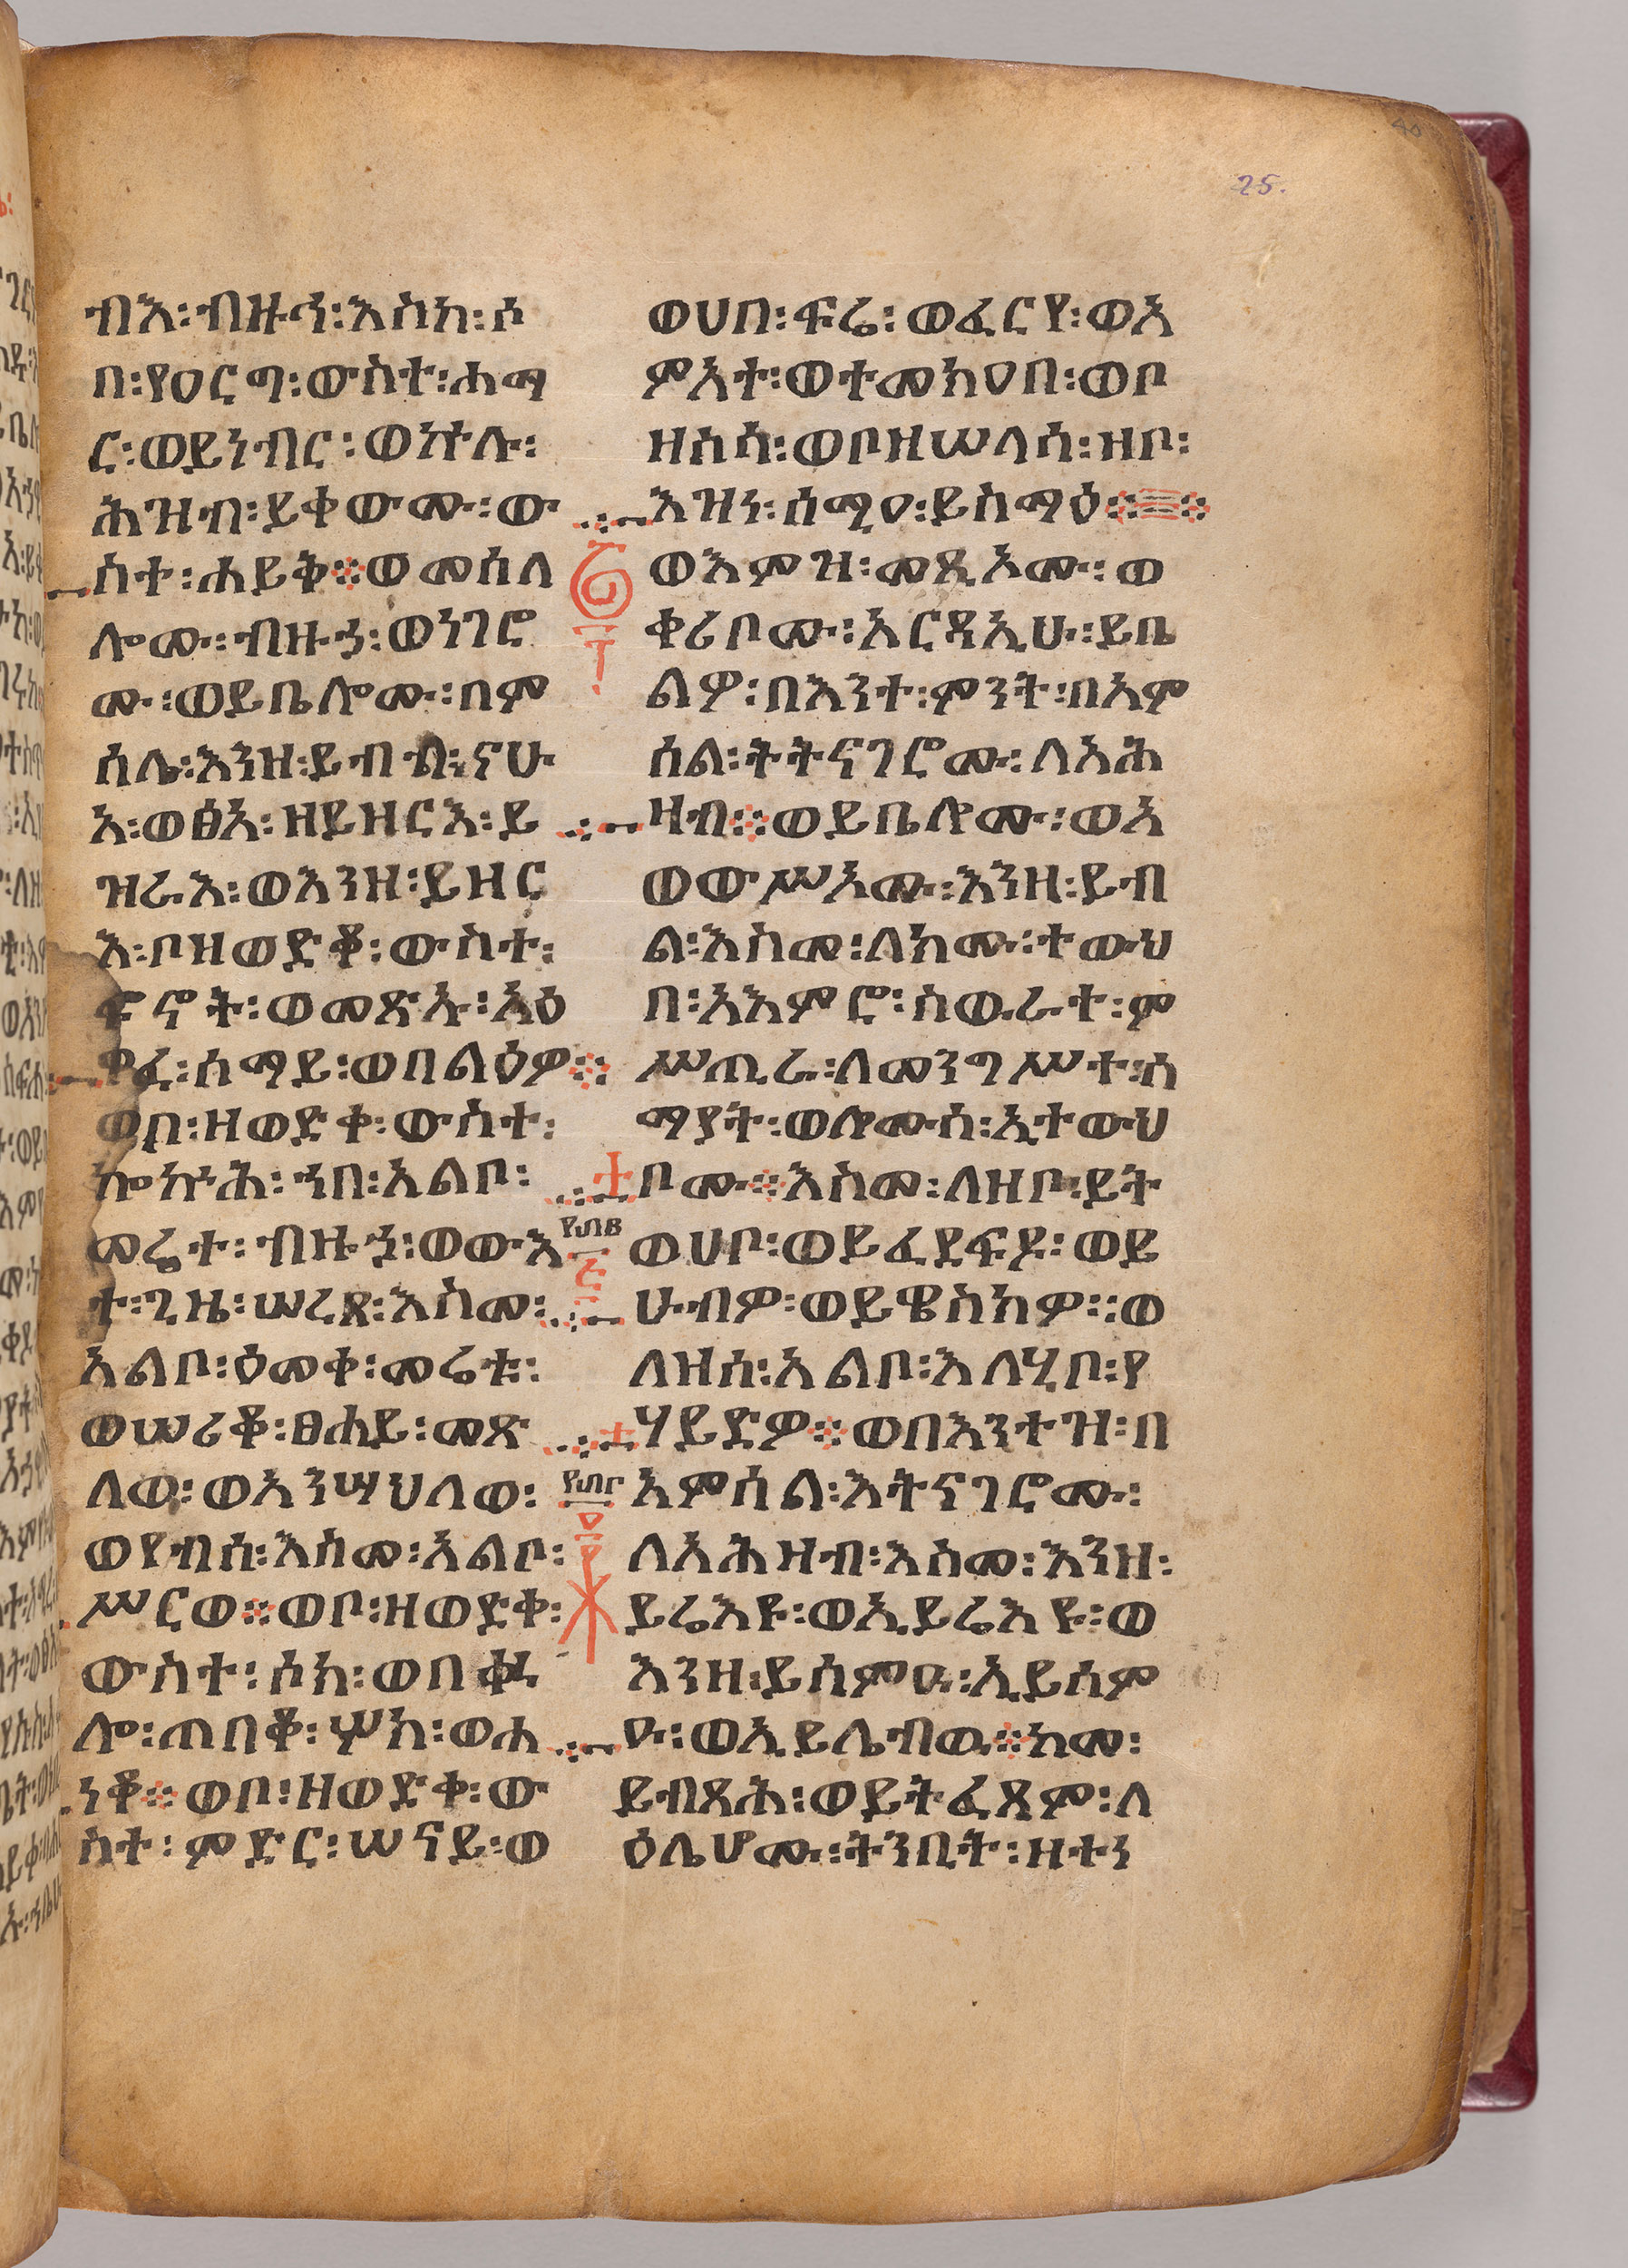 25.
ብእ፡ብዙኅ፡እስከ፡ሶ
በ፡የዐርግ፡ውስተ፡ሐማ
ር፡ወይነብር፡ወኵሉ፡
ሕዝብ፡ይቀውሙ፡ው
ስተ፡ሐይቅ፨ወመሰለ
ሎሙ፡ብዙኃ፡ወነገሮ
ሙ፡ወይቤሎሙ፡በም
ሳሌ፡እንዘ፡ይብል፡ናሁ
አ፡ወፅአ፡ዘይዘርእ፡ይ
ዝራእ፡ወእንዘ፡ይዘር
እ፡ቦዘወድቆ፡ውስተ፡
ፍኖት፡ወመጽኡ፡አዕ
ዋፈ፡ሰማይ፡ወበልዕዎ፨
ወቦ፡ዘወድቀ፡ውስተ፡
ኰኵሕ፡ኀበ፡አልቦ፡
መሬተ፡ብዙኃ፡ወውእ
ተ፡ጊዜ፡ሠረጸ፡እስመ፡
አልቦ፡ዕመቀ፡መሬቱ፡
ወሠሪቆ፡ፀሐይ፡መጽ
ለወ፡ወአንሣህለወ፡
ወየብሰ፡እስመ፡አልቦ፡
ሥርወ፨ወቦ፡ዘወድቀ፡
ውስተ፡ሶክ፡ወበቍ
ሎ፡ጠበቆ፡ሦክ፡ወሐ
ነቆ፨ወቦ፡ዘወድቀ፡ው
ስተ፡ምድር፡ሠናይ፡ወ
ወሀበ፡ፍሬ፡ወፈርየ፡ወእ
ምአት፡ወተመክዐበ፡ወቦ
ዘስሳ፡ወቦዘሠላሳ፡ዘቦ፡
እዝነ፡ሰሚዐ፡ይስማዕ፨
ወእምዝ፡መጺኦሙ፡ወ
ቀሪቦሙ፡አርዳኢሁ፡ይቤ
ልዎ፡በእንተ፡ምንት፡በአም
ሳል፡ትትናገሮሙ፡ለአሕ
ዛብ፨ወይቤሎሙ፡ወአ
ወውሥኦሙ፡እንዘ፡ይብ
ል፡እስመ፡ለክሙ፡ተውህ
በ፡አእምሮ፡ስወራተ፡ም
ሥጢራ፡ለመንግሥተ፡ሰ
ማያት፡ወሎሙሰ፡ኢተውህ
ቦሙ፨እስመ፡ለዘቦ፡ይት
ወሀቦ፡ወይፈደፍዶ፡ወይ
ሁብዎ፡ወይዌስክዎ፡፡ወ
ለዘሰ፡አልቦ፡እለሂቦ፡የ
ሃይድዎ፨ወበእንተዝ፡በ
አምሳል፡እትናገሮሙ፡
ለአሕዛብ፡እስመ፡እንዘ፡
ይሬእዩ፡ወኢይሬእዩ፡ወ
እንዘ፡ይሰምዑ፡ኢይሰም
ዑ፡ወኢይሌብዉ፨ከመ፡
ይብጻሕ፡ወይትፈጸም፡ለ
ዕሌሆሙ፡ትንቢት፡ዘተነ